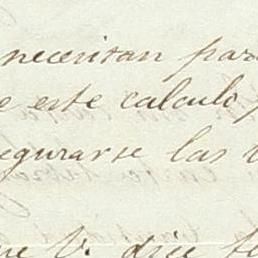 necesitan para
este calculo
egurarse las
V. dice